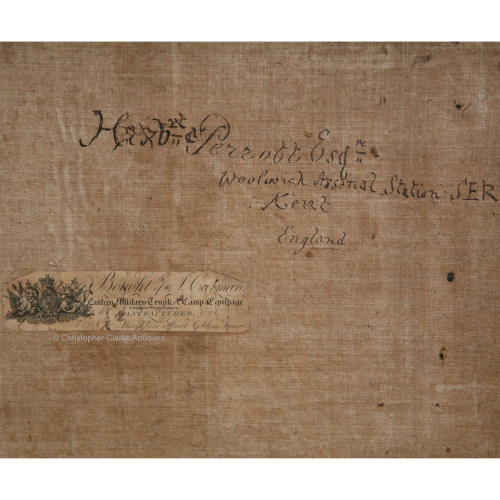 Perrott Esqre
Woolwich Arsenal Station SER
Kent
England
Bought of
Canteen Military Trunk & Camp Equipage
MANUFACTURER,
Street Golden Square
© Christopher Clarke Antiques